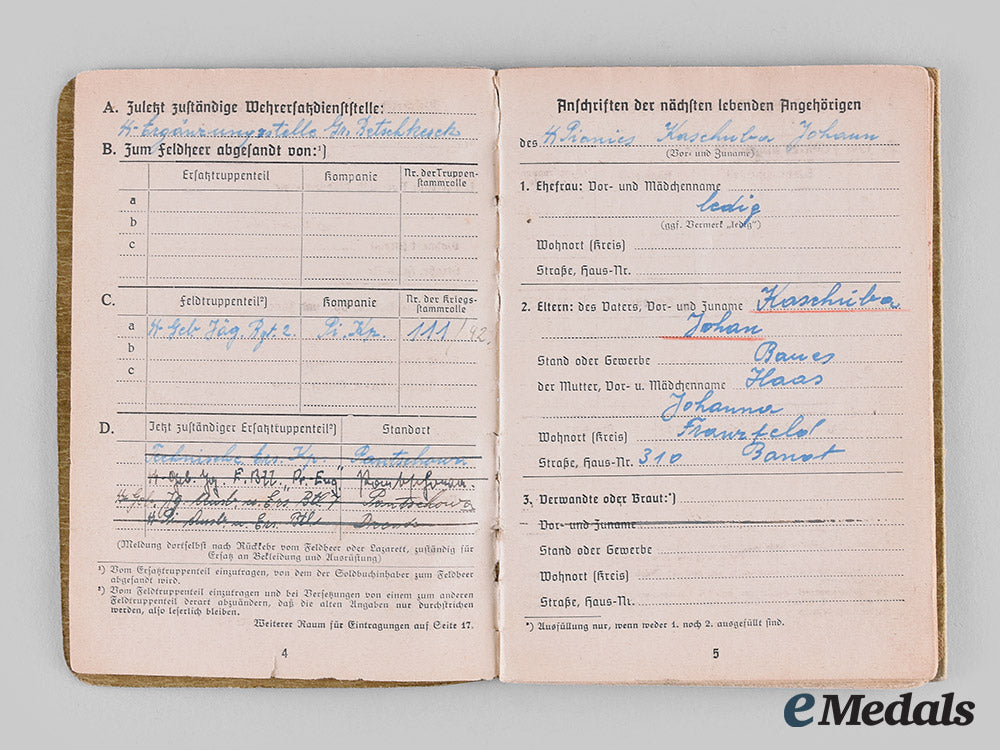 A. Zuletzt zuständige Wehrersatzdienststelle:
ᛋᛋ-Ergänzungsstelle Gr. Betschkerek
B. Zum Feldheer abgesandt von:¹)
Ersatztruppenteil Kompanie Nr. der Truppen-
stammrolle
a
b
c
C. Feldtruppenteil²) Kompanie Nr. der Kriegs-
stammrolle
a ᛋᛋ Geb Jäg. Rgt. 2. Pi. Kp. 111/42
b
c
D. Jetzt zuständiger Ersatztruppenteil²) Standort
Technische Ers. Kp. Pantschowa
ᛋᛋ-Geb. Jg. E. Btl. "Pr. Eug" Pantschowa.
ᛋᛋ Geb. Jg Ausb. u. Ers. Btl 7 Pantschowa
ᛋᛋ Pi Ausb. u. Ers. Btl
(Meldung dortselbst nach Rückkehr vom Feldheer oder Lazarett, zuständig für
Ersatz an Bekleidung und Ausrüstung)
¹) Vom Ersatztruppenteil einzutragen, von dem der Soldbuchinhaber zum Feldheer
abgesandt wird.
²) Vom Feldtruppenteil einzutragen und bei Versetzungen von einem zum anderen
Feldtruppenteil derart abzuändern, daß die alten Angaben nur durchstrichen
werden, also leserlich bleiben.
Weiterer Raum für Eintragungen auf Seite 17.
4
Anschriften der nächsten lebenden Angehörigen
des ᛋᛋ Pionier Kaschuba Johann
(Vor- und Zuname)
1. Ehefrau: Vor- und Mädchenname
ledig
(ggf. Vermerk „ledig")
Wohnort (Kreis)
Straße, Haus-Nr.
2. Eltern: des Vaters, Vor- und Zuname Kaschuba
Johan
Stand oder Gewerbe Bauer
der Mutter, Vor- u. Mädchenname Haas
Johanna
Wohnort (Kreis) Franzfeld
Straße, Haus-Nr. 310 Banat
3. Verwandte oder Braut:*)
Vor- und Zuname
Stand oder Gewerbe
Wohnort (Kreis)
Straße, Haus-Nr.
*) Ausfüllung nur, wenn weder 1. noch 2. ausgefüllt sind.
5
eMedals